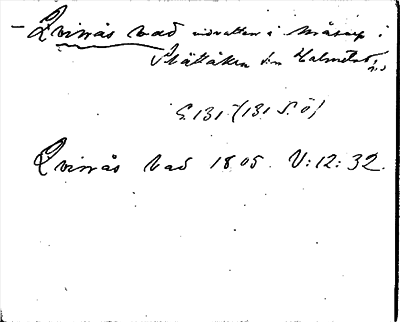 - Qvirrås vad vidvatten i Måsarp i
Slättåkra sn Halmstad hd
G. 131. (131 S. Ö)
Qvirrås Vad 1805. V:12:32.